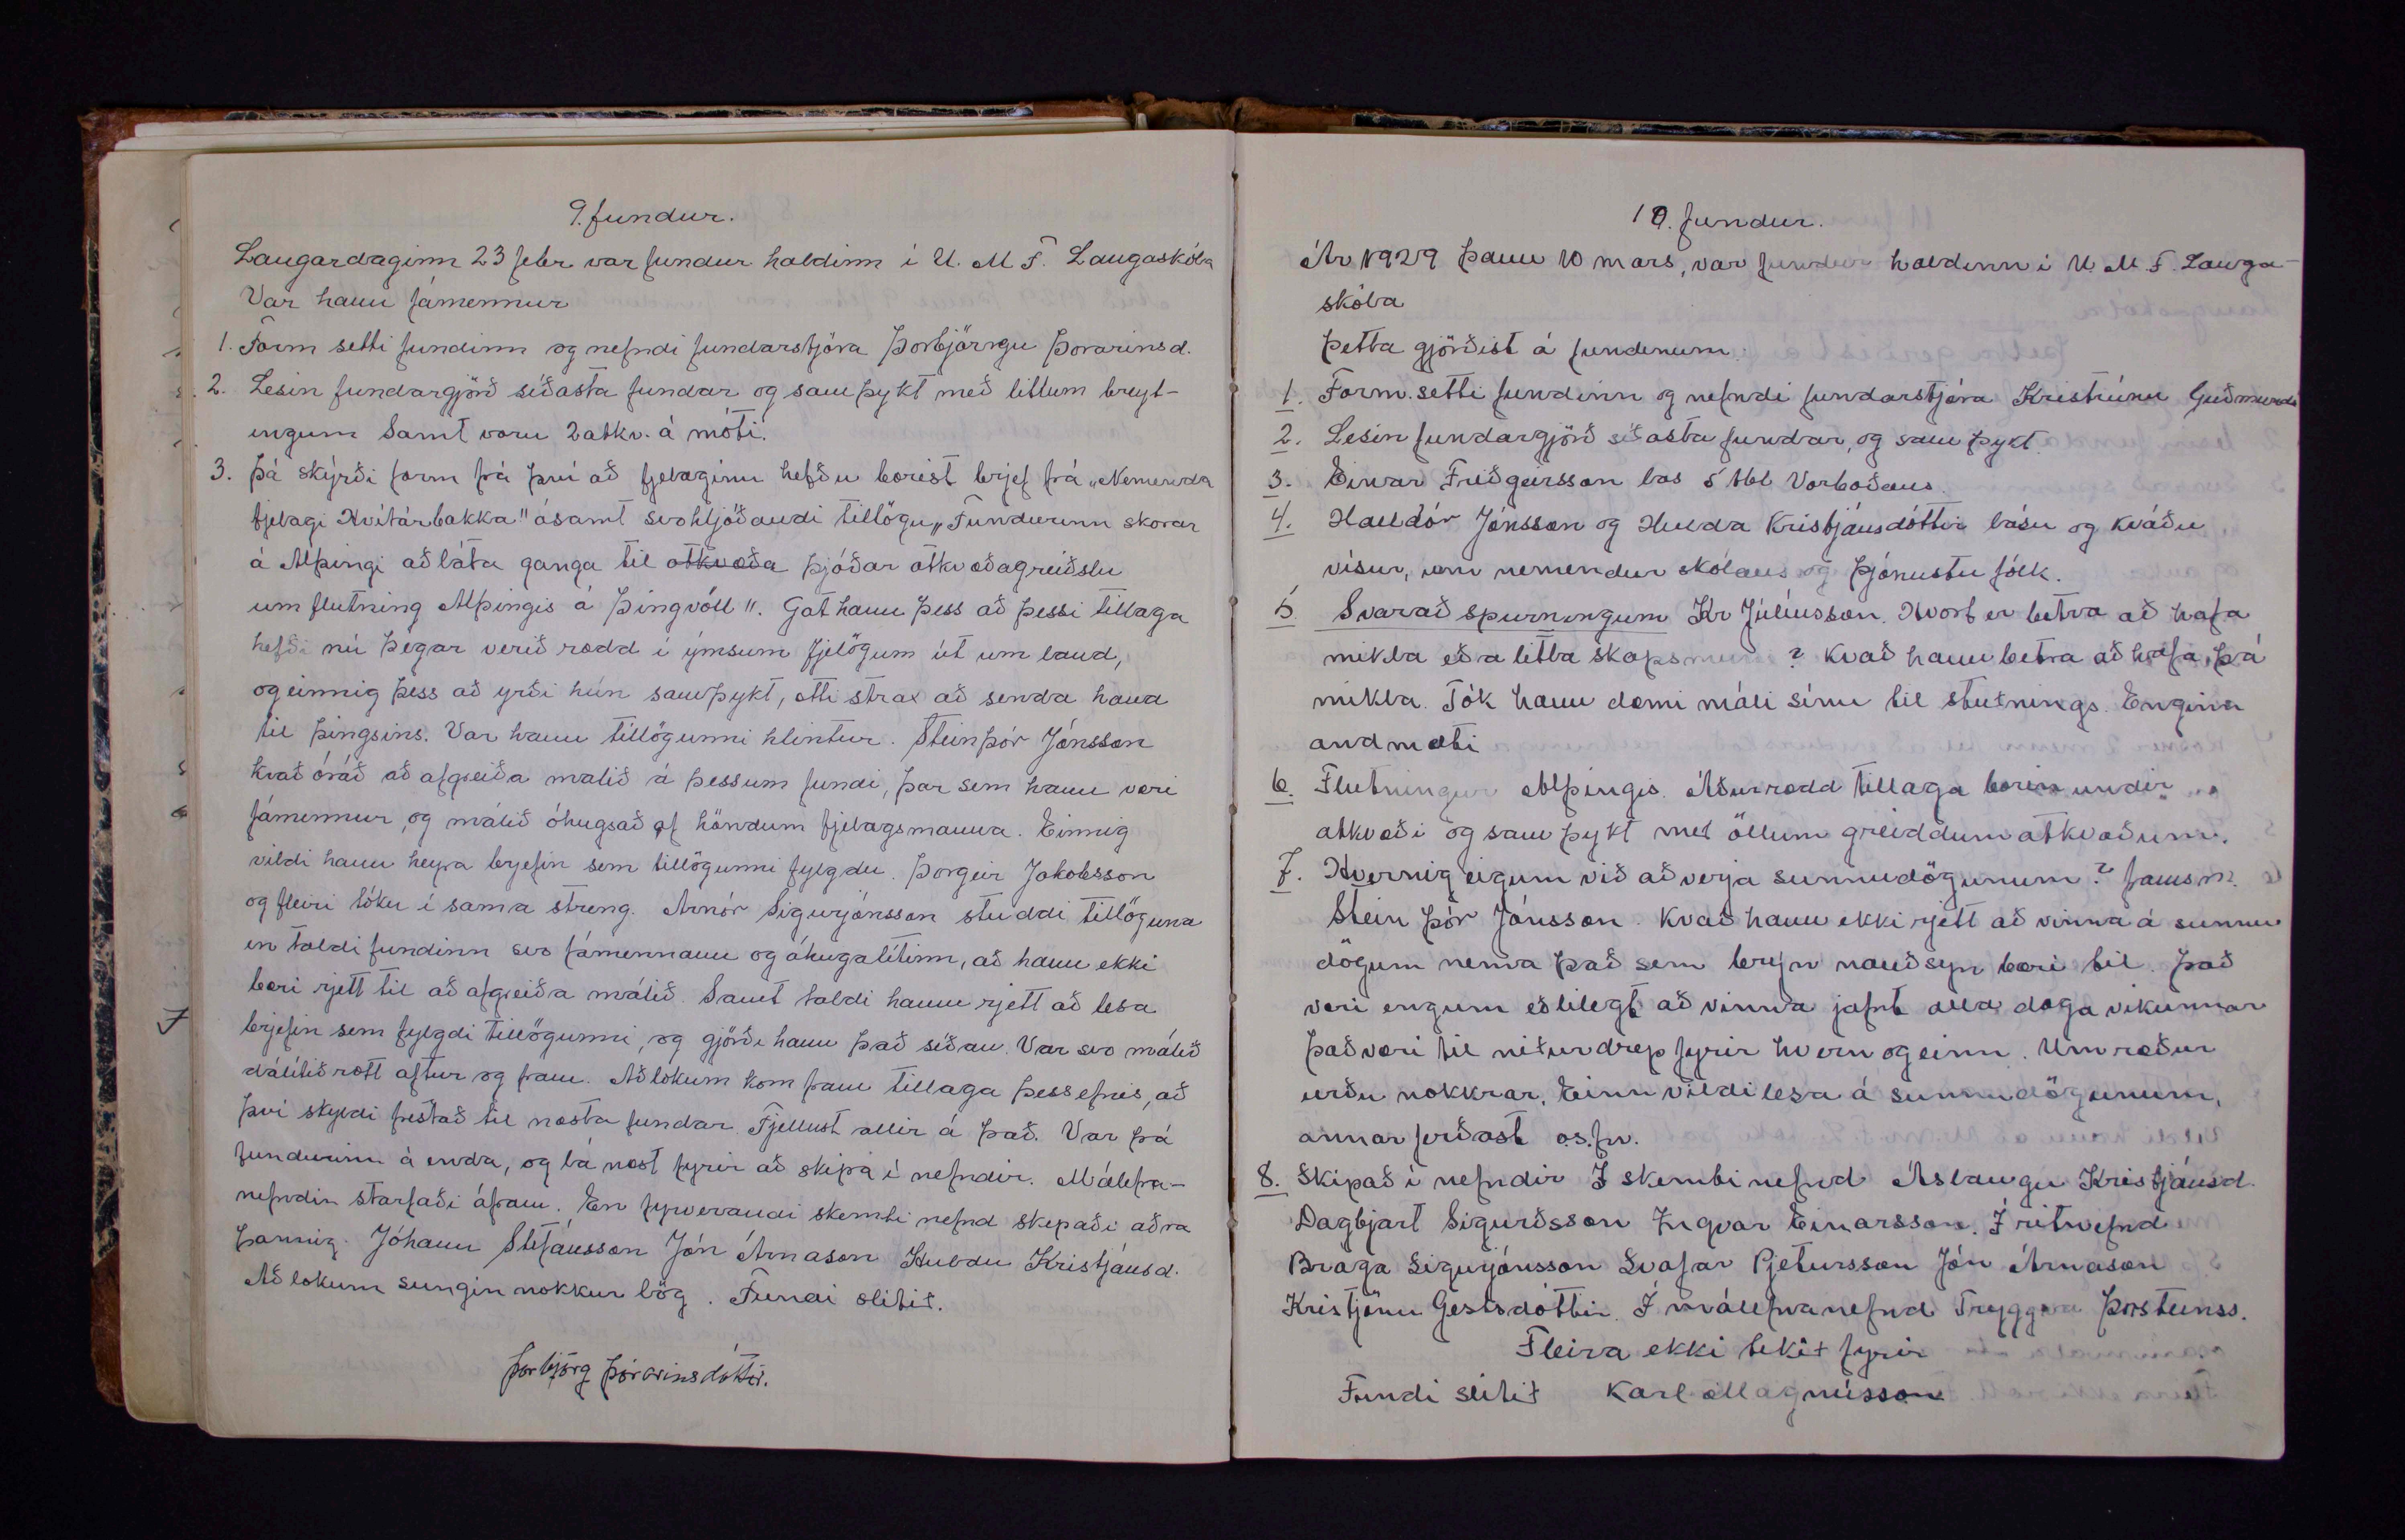 9. fundur.
Laugardaginn 23 febr var fundur haldinn í U. M F. Laugaskóla
Var hann fámennur
1. Form setti fundinn og nefndi fundarstjóra Þorbjörgu Þorarinsd.
2. Lesin fundargjörð síðasta fundar og samþykt með litlum breyt-
ingum Samt voru 2 atkv. á móti.
3. Þá skýrði form frá því að fjelaginu hefðu borist brjef frá „Nemenda
fjelagi Hvítárbakka" ásamt svohljóðandi tillögu „Fundurinn skorar
á Alþingi að láta ganga til atkvæða þjóðar atkvæðagreiðslu
um flutning Alþingis á Þingvöll". Gat hann þess að þessi tillaga
hefði nú þegar verið rædd í ýmsum fjelögum út um land,
og einnig þess að yrði hún samþykt, ætti strax að senda hana
til þingsins. Var hann tillögunni hlintur. Steinþór Jónsson
kvað óráð að afgreiða malið á þessum fundi, þar sem hann væri
fámennur, og málið óhugsað af höndum fjelagsmanna. Einnig
vildi hann heyra brjefin sem tillögunni fylgdu. Þorgeir Jakobsson
og fleiri tóku í sama streng. Arnór Sigurjónsson studdi tillöguna
en taldi fundinn svo fámennann og áhugalítinn, að hann ekki
bæri rjett til að afgreiða málið. Samt taldi hann rjett að lesa
brjefin sem fylgdi tillögunni, og gjörði hann það síðan. Var svo málið
dálítið rætt aftur og fram. Að lokum kom fram tillaga þess efnis, að
því skyldi frestað til næsta fundar. Fjellust allir á það. Var þá
fundurinn á enda, og lá næst fyrir að skipa í nefndir. Málefna-
nefndin starfaði áfram. En fyrverandi skemti nefnd skipaði aðra
þannig. Jóhann Stefánsson Jón Árnason Huldu Kristjánsd.
Að lokum sungin nokkur lög. Fundi slitið.
Þorbjörg Þórarinsdóttir.
10. fundur.
Ár 1929 þann 10 mars, var fundur haldinn í U. M. F. Lauga-
skóla
Þetta gjörðist á fundinum:
1. Form. setti fundinn og nefndi fundarstjóra Kristrúnu Guðmunds
2. Lesin fundargjörð síðasta fundar, og samþykt.
3. Einar Friðgeirsson las 5 tbl Vorboðans.
4. Halldór Jónsson og Hulda Kristjánsdóttir lásu og kváðu
vísur, um nemendur skólans og þjónustu fólk.
5. Svarað spurningum Kr Júlíusson. Hvort er betra að hafa
mikla eða litla skapsmuni? Kvað hann betra að hafa þá
mikla. Tók hann dæmi máli sínu til stuðnings. Enginn
andmælti
6. Flutningur Alþingis. Áður rædd tillaga borin undir
atkvæði og samþykt með öllum greiddum atkvæðum.
7. Hvernig eigum við að verja sunnudögunum? framsm.
Stein þór Jónsson. Kvað hann ekki rjett að vinna á sunnu
dögum nema það sem brýn nauðsyn bæri til. Það
væri engum eðlilegt að vinna jafnt alla daga vikunnar
það væri til niðurdrep fyrir hvern og einn. Umræður
urðu nokkrar. Einn vildi lesa á sunnudögunum,
annar ferðast o.s.frv.
8. Skipað í nefndir Í skemtinefnd Áslaugu Kristjánsd.
Dagbjart Sigurðsson Ingvar Einarsson. Í ritnefnd
Braga Sigurjónsson Svafar Pjetursson Jón Árnason
Kristjönu Gestsdóttir. Í málefnanefnd Tryggva Þorsteinss.
Fleira ekki tekið fyrir
Fundi slitið Karl Magnússon